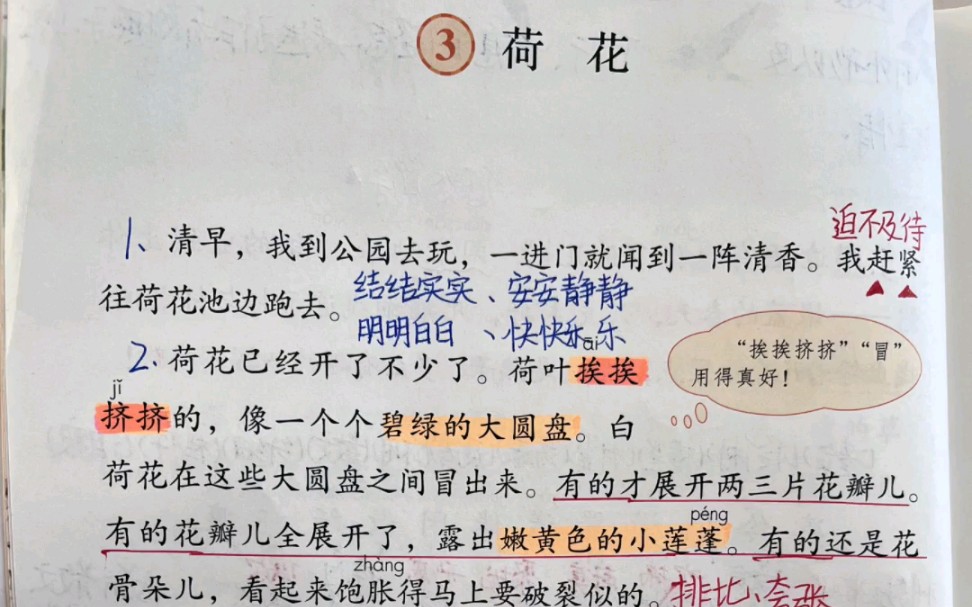 3 荷花
迫不及待
1、清早，我到公园去玩，一进门就闻到一阵清香。我赶紧
往荷花池边跑去。
结结实实、安安静静
明明白白、快快乐乐
āi
2.荷花已经开了不少了。荷叶挨挨
“挨挨挤挤”“冒”
用得真好！
jǐ
挤挤的，像一个个碧绿的大圆盘。白
荷花在这些大圆盘之间冒出来。有的才展开两三片花瓣儿。
péng
有的花瓣儿全展开了，露出嫩黄色的小莲蓬。有的还是花
zhàng
骨朵儿，看起来饱胀得马上要破裂似的。排比、夸张